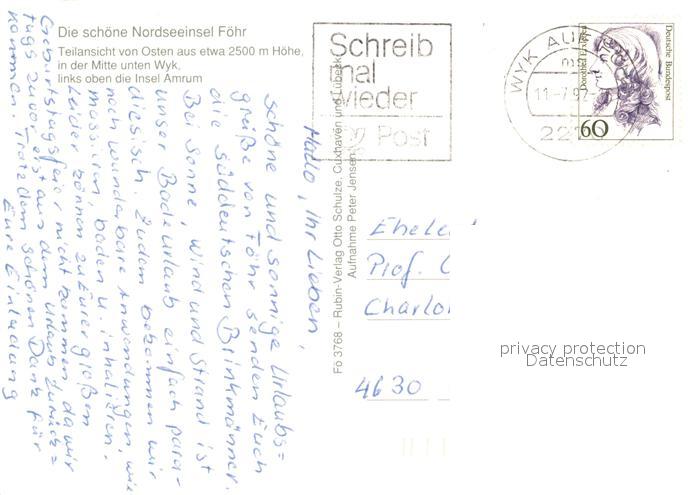 Die schöne Nordseeinsel Föhr
Teilansicht von Osten aus etwa 2500 m Höhe,
in der Mitte unten Wyk,
links oben die Insel Amrum
Schreib
mal
wieder
Post
WYK AUF
11-7.92
22
60
Deutsche Bundespost
Fö 3768 – Rubin-Verlag Otto Schulze, Cuxhaven und Lübeck
Aufnahme Peter Jensen
Hallo, Ihr Lieben,
schöne und sonnige Urlaubs=
grüße von Föhr senden Euch
die süddeutschen Brinkmänner.
Bei Sonne, Wind und Strand ist
unser Badeurlaub einfach para-
diesisch. Zudem bekommen wir
noch wunderbare Anwendungen, wie
massieren, baden u. inhalieren.
Leider können zu Eurer großen
Geburtstagsfeier nicht kommen, da wir
tags zuvor erst aus dem Urlaub zurück=
kommen. Trotzdem schönen Dank für
Eure Einladung
Ehele
Prof.
Charlo
4630
privacy protection
Datenschutz